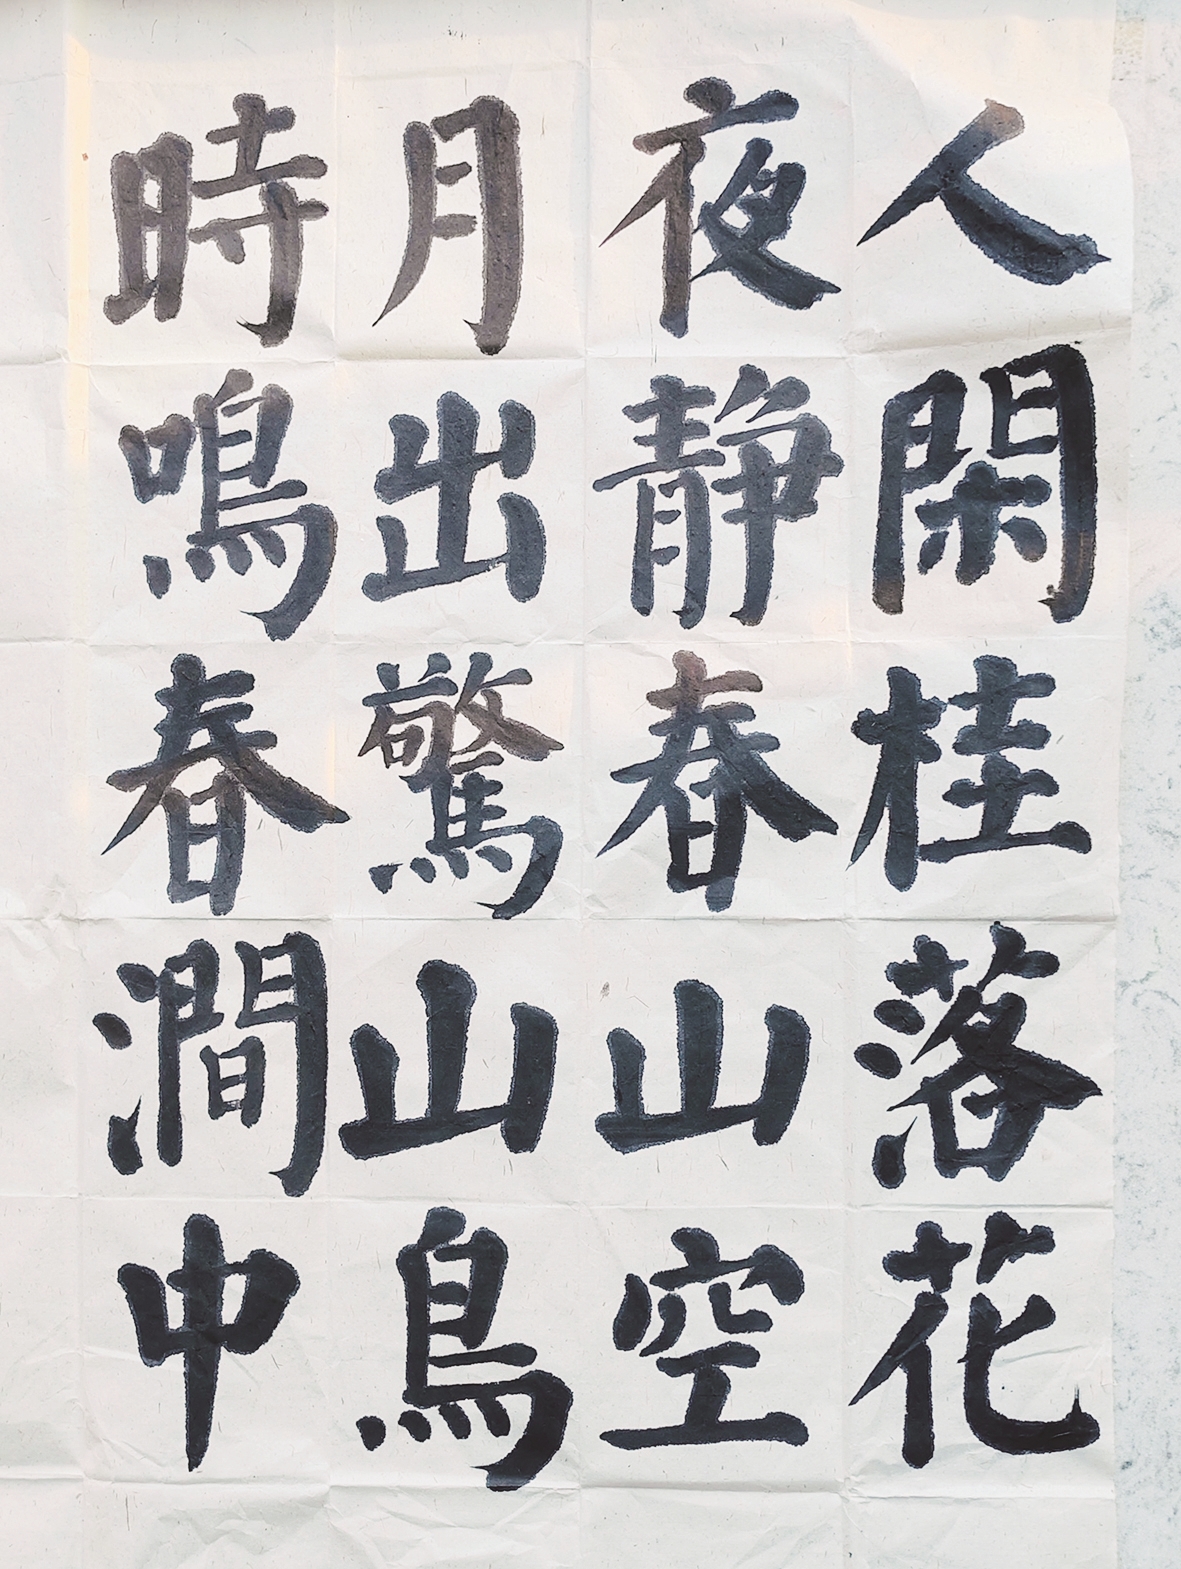 人閑桂落花
夜靜春山空
月出驚山鳥
時鳴春澗中